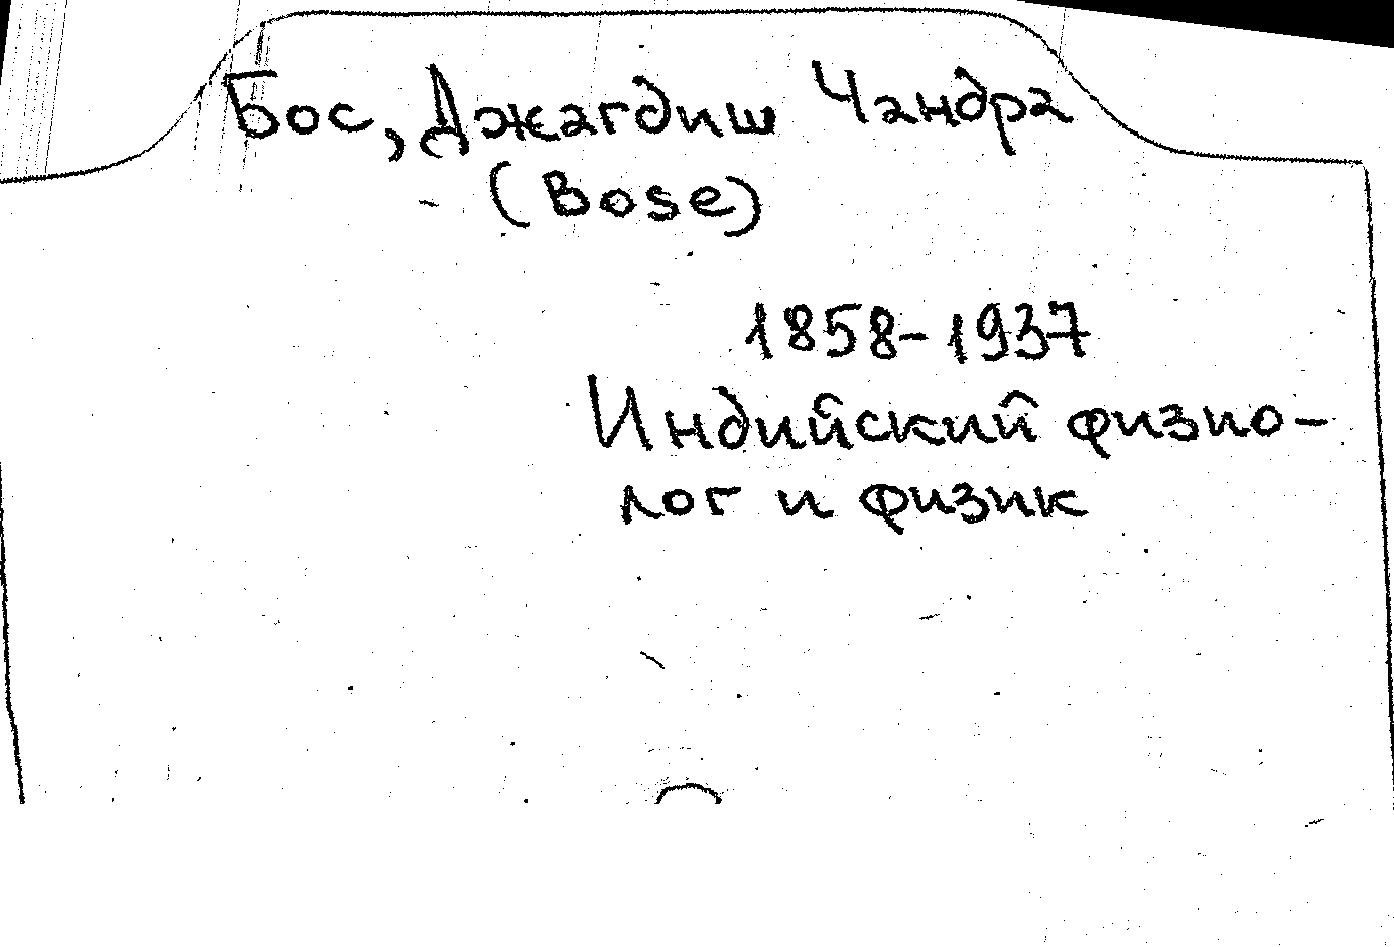 Бос, Джагдиш Чандра
(Bose)
1858-1937
Индийский физио-
лог и физик